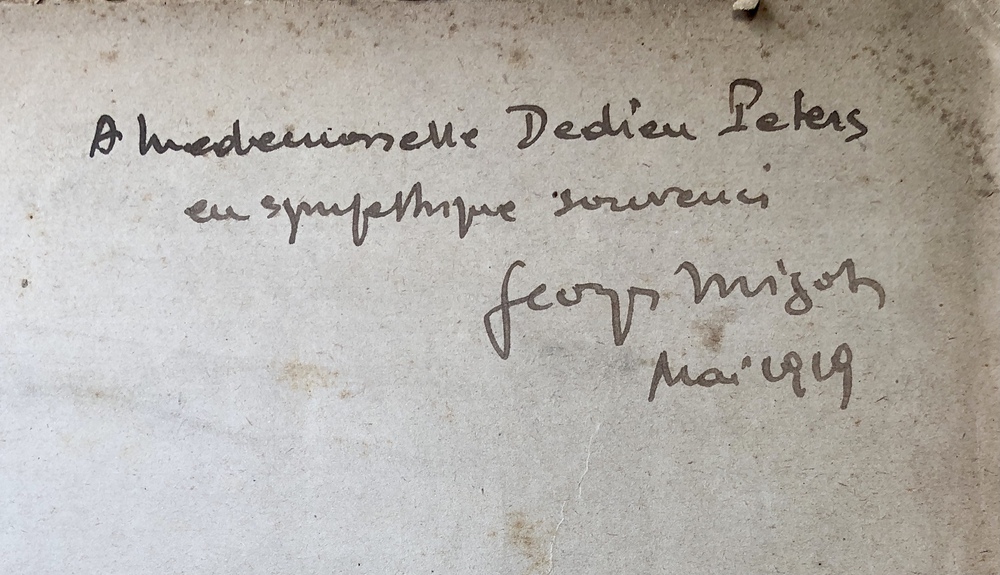 A Mademoiselle Dedieu Peters
en sympathique souvenir
Georges Migot
Mai 1919